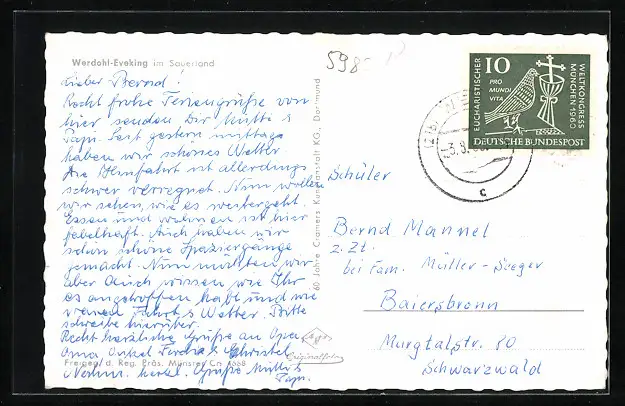 Werdohl-Eveking im Sauerland
Lieber Bernd!
Recht frohe Feriengrüße von
hier senden Dir Mutti &
Papi. Seit gestern mittag
haben wir schönes Wetter
Die Hinfahrt ist allerdings
schwer verregnet. Nun wollen
wir sehen, wie es weitergeht.
Essen und wohnen ist hier
fabelhaft. Auch haben wir
schon schöne Spaziergänge
gemacht. Nun müßten wir
aber auch wissen wie Ihr
es angetroffen habt und wie
waren Fahrt & Wetter. Bitte
schreibe hierüber.
Recht herzliche Grüße an Opa,
Oma Onkel & Christel
herzl. Grüße Mutti &
Papi.
Freigeg. d. Reg. Präs. Münster Cn 4668
60 Jahre Cramers Kunstanstalt KG., Dortmund
Agfa
Originalfoto
598-
10
PRO
MUNDI
VITA
EUCHARISTISCHER
WELTKONGRESS
MÜNCHEN 1960
DEUTSCHE BUNDESPOST
c
Schüler
Bernd Mannel
z. Zt.
bei Fam. Müller-Seeger
Baiersbronn
Murgtalstr. 80
Schwarzwald